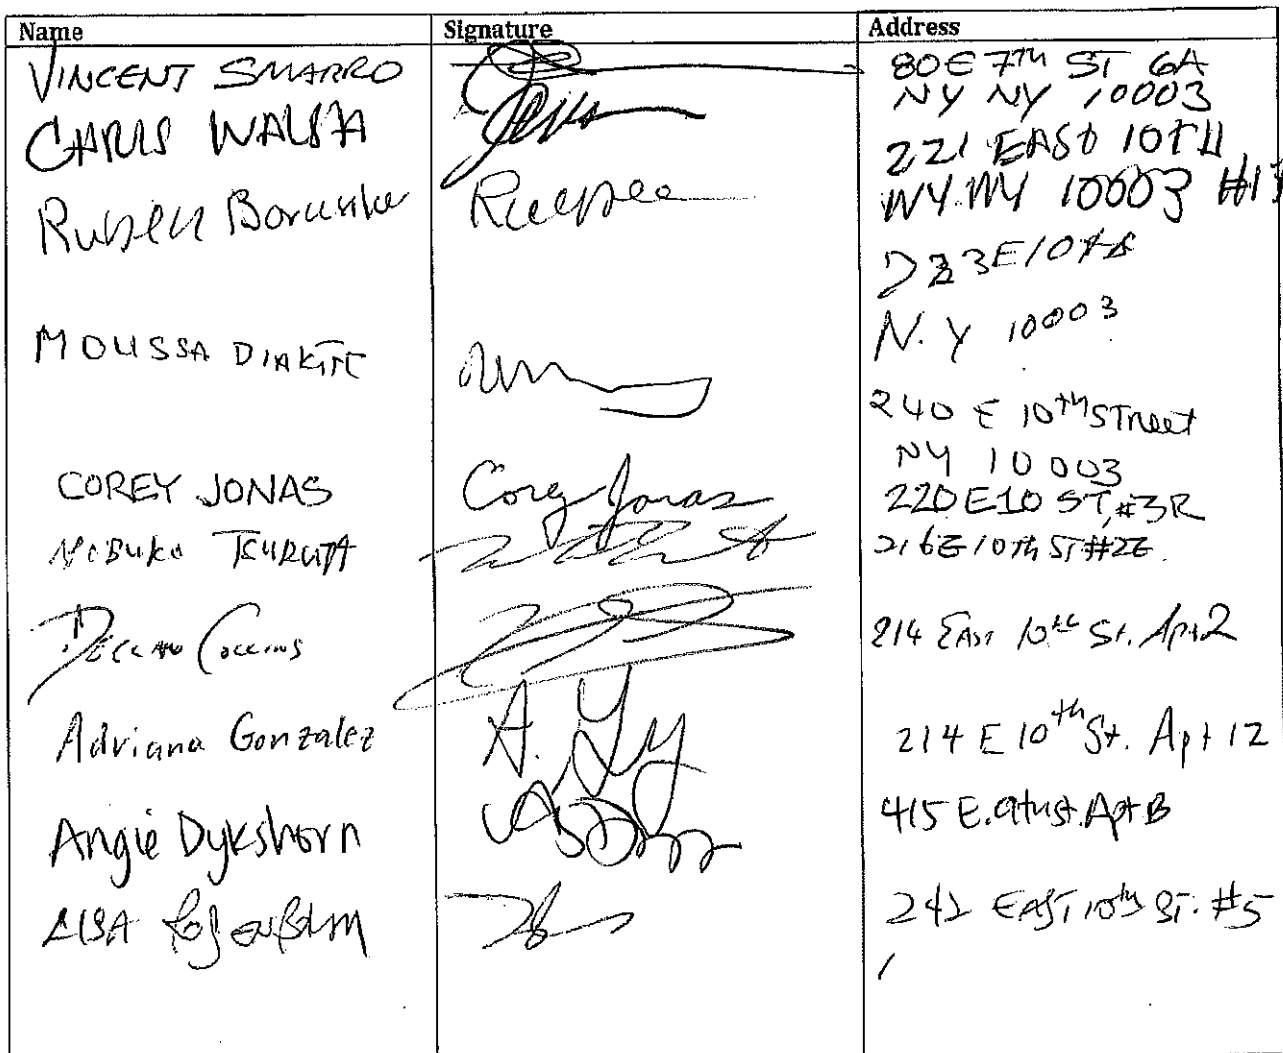 Name Signature Address
VINCENT SMARRO 80 E 7TH ST 6A
NY NY 10003
CHRIS WALSH 221 EAST 10TH
NY NY 10003 #13
Russell
E 10th
N.Y 10003
MOUSSA DIAKITE
240 E 10th Street
NY 10003
COREY JONAS Corey Jonas 220 E 10 ST, #3R
NOBUKO TSURUTA 216 E 10th ST #2E
Declan Collins 214 EAST 10th St. Apt 2
Adriana Gonzalez A. 214 E 10th St. Apt 12
Angie Dykshorn 415 E. 9th st. Apt B
LISA 242 EAST 10th ST. #5